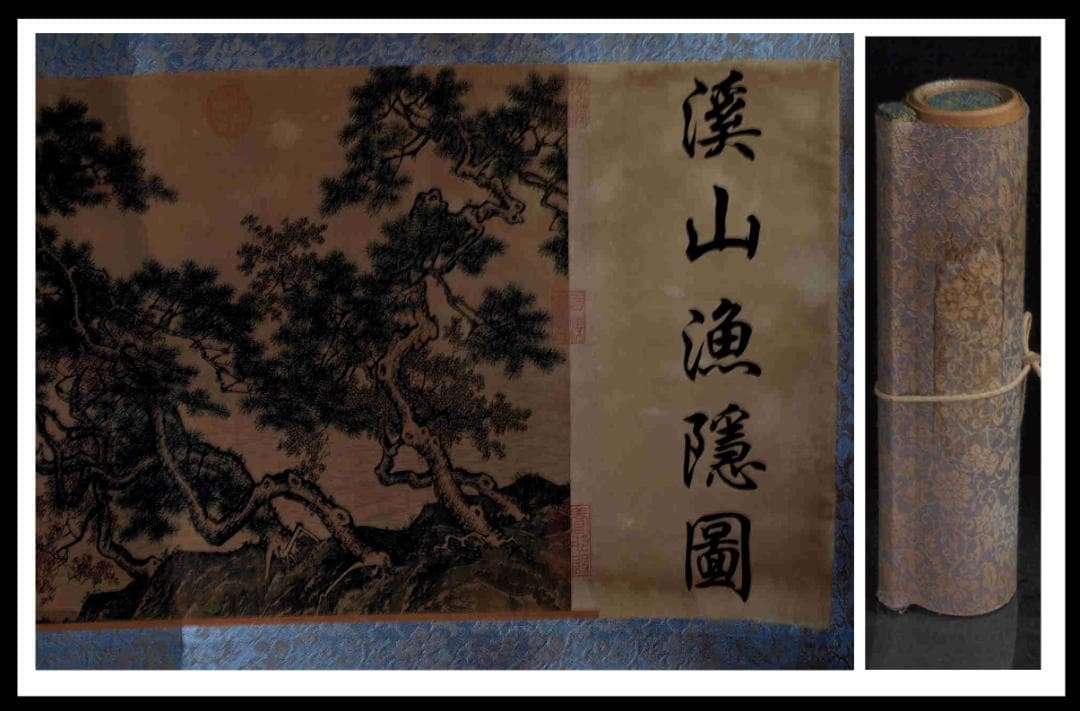 溪山漁隱圖